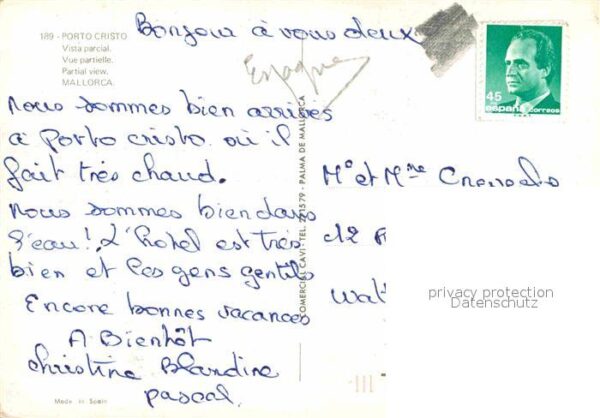 Bonjour à vous deux
189 - PORTO CRISTO
Vista parcial.
Vue partielle.
Partial view.
MALLORCA.
Espagne
45
españa correos
Nous sommes bien arrivés
à Porto cristo où il
fait très chaud.
Nous sommes bien dans
l'eau! L'hotel est très
bien et les gens gentils
Encore bonnes vacances
A Bientôt
Christine Blandine
pascal.
COMERCIAL CAVI - TEL. 271579 - PALMA DE MALLORCA
Mr et Mme
12
Wat
privacy protection
Datenschutz
Made in Spain